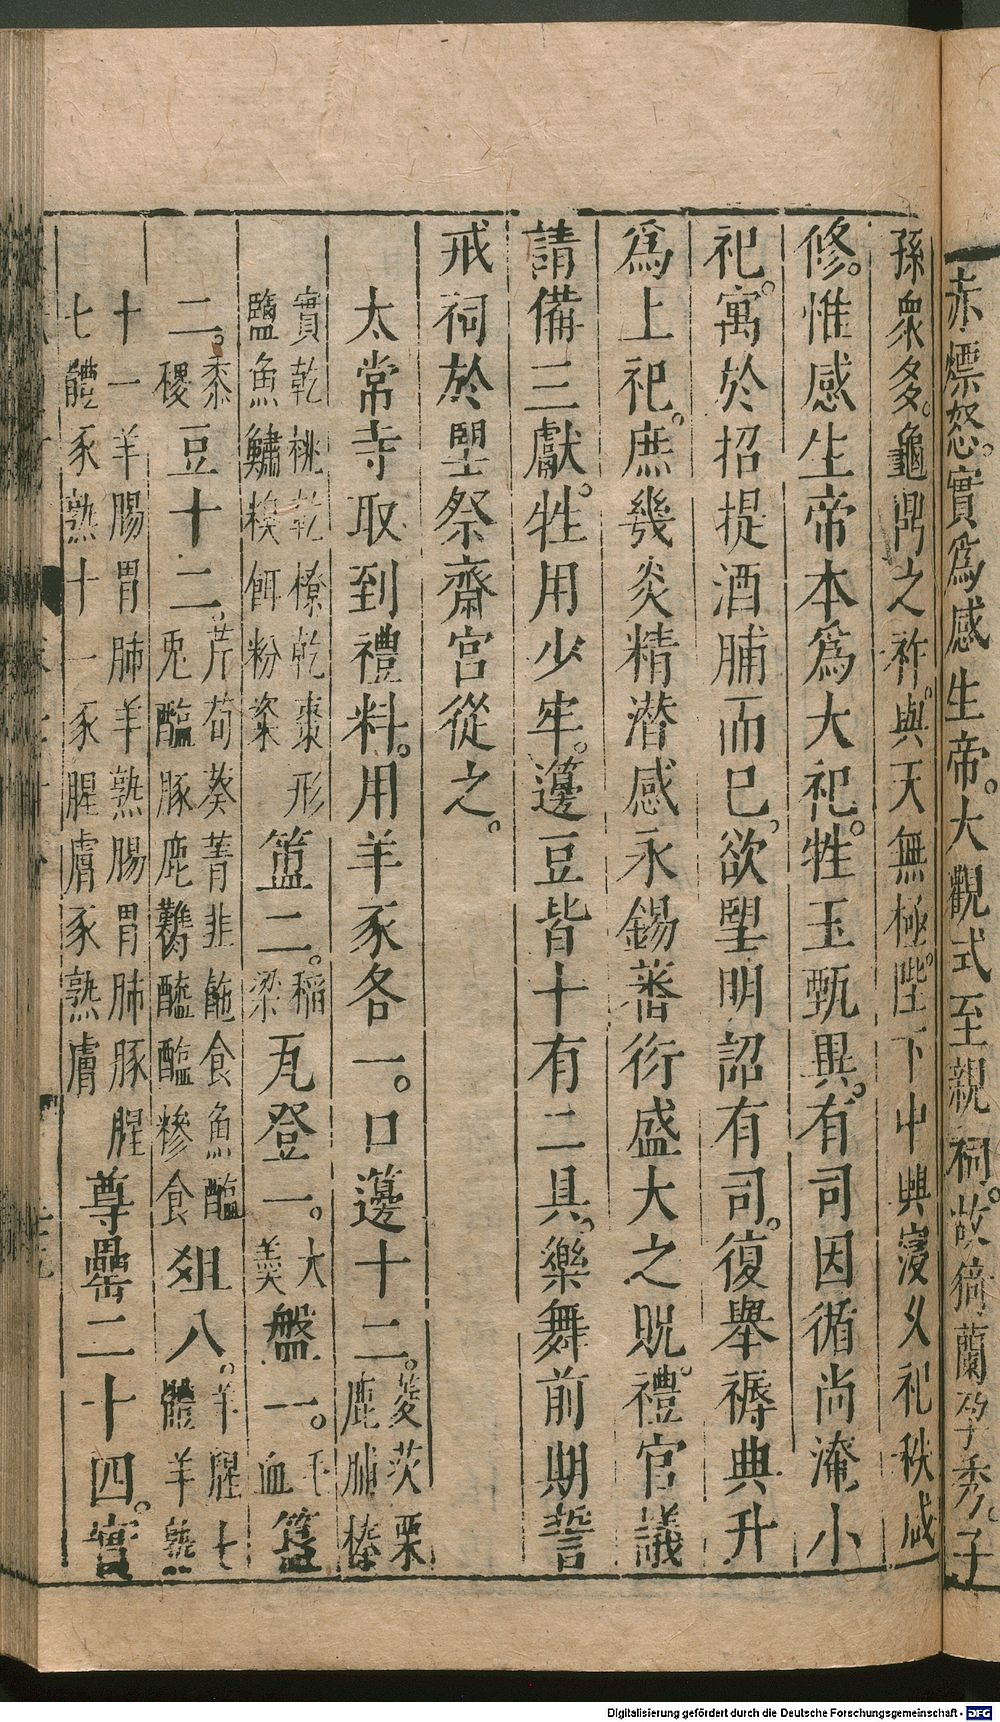 赤熛怒。實爲感生帝。大觀式至親祠。故猗蘭孕秀。子
孫衆多。龜鼎之祚。與天無極。陛下中興寖乆祀秩咸
修。惟感生帝本爲大祀。牲玉甄異。有司因循尚淹小
祀。寓於招提酒脯而巳。欲朢明詔有司。復舉禱典升
爲上祀。庶幾炎精潛感永錫蕃衍盛大之貺。禮官議
請備三獻。牲用少牢。籩豆皆十有二具。樂舞前期誓
戒祠於朢祭齋宮從之。
太常寺取到禮料。用羊豕各一。口籩十二。菱茨栗鹿脯榛
實乾桃乾橑乾棗形鹽魚鱐糗餌粉粢簠二。稻粱瓦登一。大羹盤一。毛血簋
二。黍稷豆十二。芹筍葵菁韭酏食魚醢兎醢豚鹿臡醓醢糝食俎八。羊腥七體羊熟
十一羊腸胃肺羊熟腸胃肺豚腥七體豕熟十一豕腥膚豕熟膚尊罍二十四。實
Digitalisierung gefördert durch die Deutsche Forschungsgemeinschaft - DFG